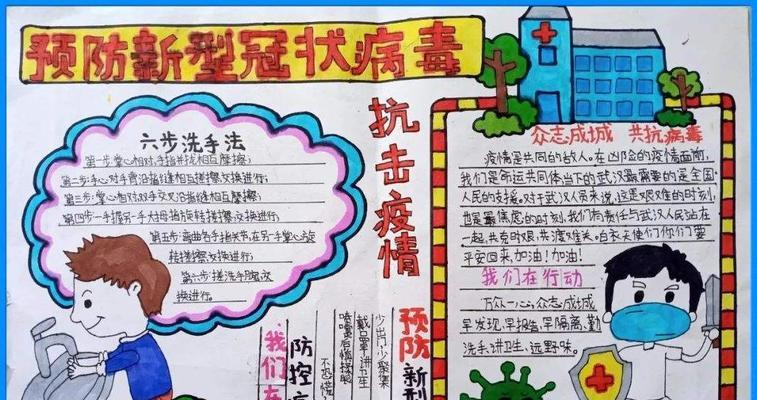 预防新型冠状病毒
六步洗手法
第一步:掌心相对,手指并拢相互摩擦;
第二步:手心对手背沿指缝相互搓擦交换进行;
第三步:掌心相对,双手交叉沿指缝相互摩擦;
第四步:一手握另一手大拇指旋转搓擦,交换进行;
第五步:弯曲各手指关节,在另一手掌心旋
转搓擦交换进行;
第六步:搓洗手腕,交
换进行。
抗击疫情
众志成城 共抗病毒
疫情是共同的敌人。在凶险的疫情面前,
我们是命运共同体当下的武汉最需要的是全国
人民的支援。对于武汉人员来说,这是艰难的时刻,
也是最焦虑的时刻,我们有责任与武汉人民站在
一起,共克时艰,共渡难关。白衣天使们你们要
平安回来,加油!加油!
我们在行动
万众一心,众志成城
早发现,早报告,早隔离,勤
洗手,讲卫生,远野味。
预防新型
少出门少聚集
戴口罩讲卫生
喷嚏后慎揉眼
不恐慌
防控
我们在